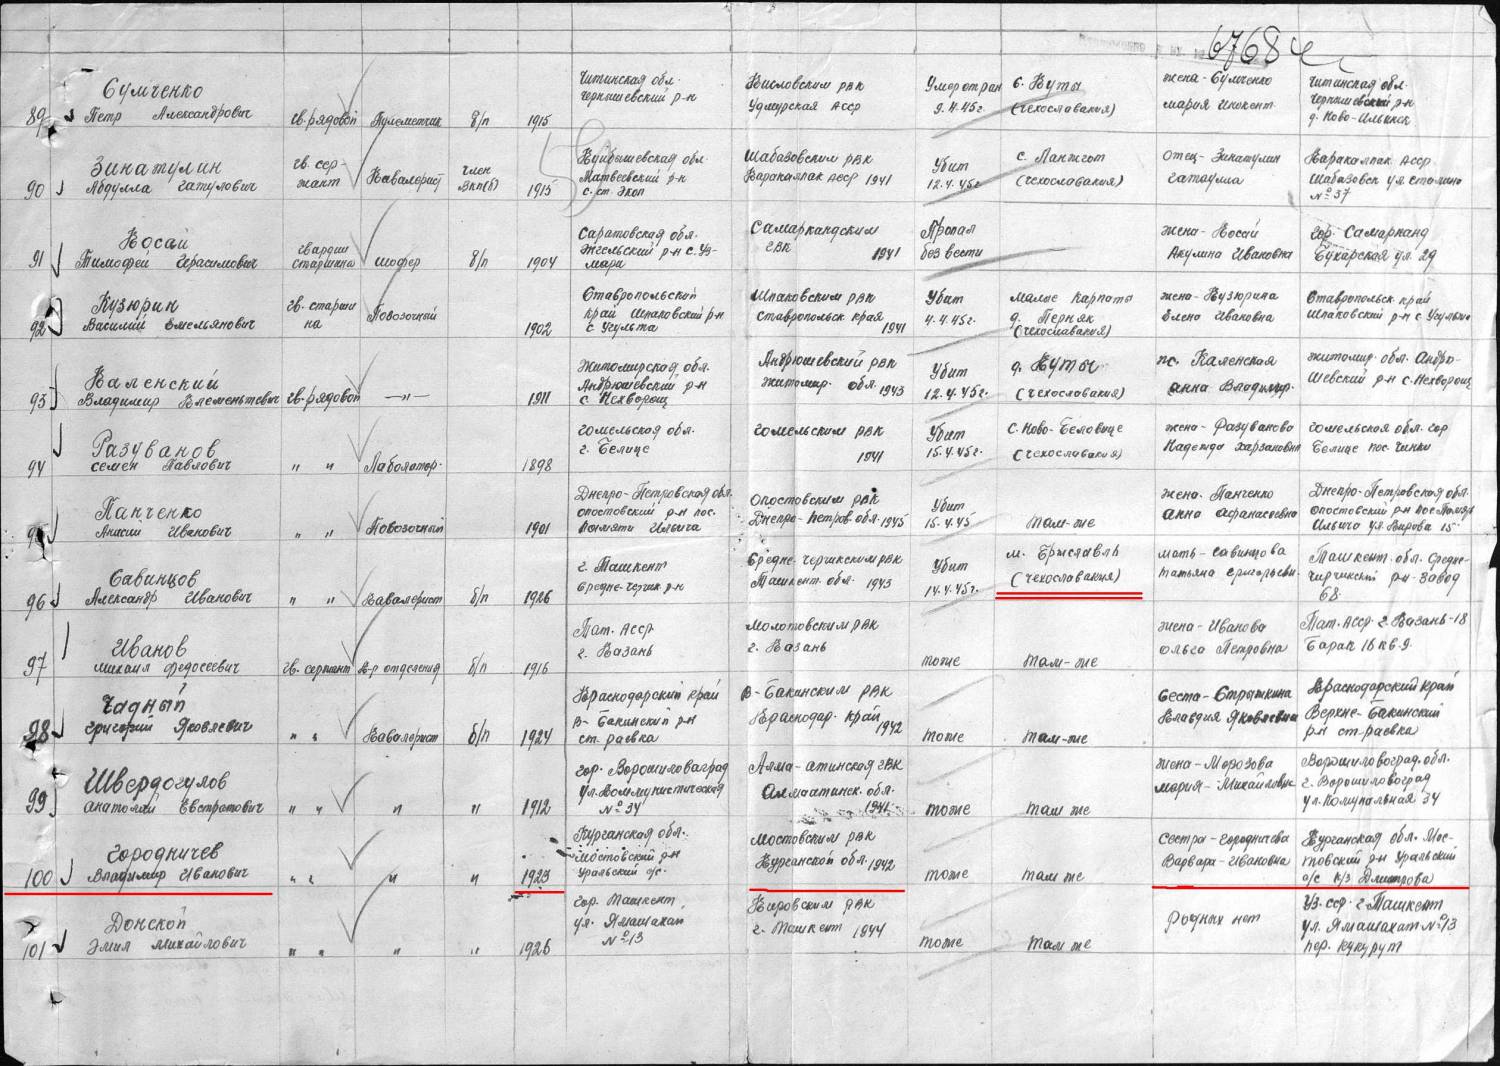 6768 с
89 Сумченко
Петр Александрович гв. рядовой Пулеметчик б/п 1915
Читинская обл.
Чернышевский р-н
Кисловским РВК
Удмурская АССР
Умер от ран
9.4.45г.
с. Куты
(Чехославакия)
жена - Сумченко
Мария Инокент.
Читинская обл.
Чернышевский р-н
д. Ново-Ильинск
90 Зинатулин
Абдулла Гатулович
гв. сер-
жант
Кавалерист
член
ВКП(б)
1915
Куйбышевская обл.
Матвеевский р-н
с. ст. Экоп
Шабазовским РВК
Каракалпак АССР 1941
Убит
12.4.45г.
с. Лантгот
(Чехославакия)
отец - Зинатулин
Гатаулла
Каракалпак АССР
Шабазовск ул Сталино
№ 37
91 Косай
Тимофей Герасимович
гвардии
старшина
шофер б/п 1904
Саратовская обл.
Самаркандским
ГВК 1941
Пропал
без вести
жена - Косай
Акулина Ивановна
гор. Самарканд
Бухарская ул. 29
92 Кузюрин
Василий Емельянович
гв. старши
на
Повозочный
1902
Ставропольский
край Шпаковский р-н
с Угульта
Шпаковским РВК
Ставропольск края
1941
Убит
4.4.45г.
Малые Карпаты
д. Перняк
(Чехославакия)
жена - Кузюрина
Елена Ивановна
Ставропольск край
Шпаковский р-н с Угульта
93 Каленский
Владимир Клементьевич гв. рядовой —"— 1911
Житомирская обл.
Андрюшевский р-н
с Нехворощ
Андрюшевский РВК
Житомир. обл. 1943
Убит
12.4.45г.
д. Куты
(Чехославакия)
Каленская
Анна Владимир.
Житомир. обл. Андрю-
шевский р-н с. Нехворощ
94 Разуванов
Семен Павлович " " Лаболатор. 1898
Гомельская обл.
г. Белице
Гомельским РВК
1941
Убит
15.4.45г.
с. Ново-Беловице
(Чехославакия)
жена - Разуванова
Надежда Харзановн
Гомельская обл. гор
Белице пос. Чинки
95 Панченко
Анисий Иванович " " Повозочный 1901
Днепро-Петровская обл.
Опостовский р-н пос.
Памяти Ильича
Опостовским РВК
Днепро-Петров обл. 1943
Убит
15.4.45
там-же
жена - Панченко
Анна Афанасеевна
Днепро-Петровская обл.
Опостовский р-н пос Памят
Ильича ул. Кирова 15
96 Савинцов
Александр Иванович " " Кавалерист б/п 1926
г. Ташкент
Средне-Чирчик р-н
Средне-Чирчикским РВК
Ташкент. обл. 1943
Убит
14.4.45г.
м. Брыславль
(Чехославакия)
мать - Савинцова
Татьяна Григорьевн.
Ташкент. обл. Средне-
Чирчикский р-н завод
68
97 Иванов
Михаил Федосеевич гв. сержант К-р отделения б/п 1916
Тат. АССР
г. Казань
Молотовским РВК
г. Казань
тоже там-же
жена - Иванова
Ольга Петровна
Тат. АССР г. Казань-18
Барак 16 кв. 9.
98 Чадный
Григорий Яковлевич " " Кавалерист б/п 1924
Краснодарский край
В-Бакинский р-н
ст. Раевка
В-Бакинским РВК
Краснодар. край
1942
тоже там-же
сестра - Стрыжкина
Клавдия Яковлевна
Краснодарский край
Верхне-Бакинский
р-н ст. Раевка
99 Швердогулов
Анатолий Евстратович " " " " 1912
гор. Ворошиловаград
ул. Коммунистическая
№ 34
Алма-Атинская ГВК
Алмаатинск. обл.
1941
тоже там же
жена - Морозова
Мария - Михайловн
Ворошиловоград. обл.
г. Ворошиловоград
ул. Комунальная 34
100 Городничев
Владимир Иванович " " " " 1923
Курганская обл.
Мостовский р-н
Уральский с/с.
Мостовским РВК
Курганской обл. 1942
тоже там же
сестра - Городничева
Варвара - Ивановна
Курганская обл. Мос-
товский р-н Уральский
с/с к/з Дмитрова
101 Донской
Эмил Михайлович " " " " 1926
гор. Ташкент
ул. Ямашахат
№ 13
Кировским РВК
г. Ташкент 1944
тоже там же
Родных нет
Уз. ССР г. Ташкент
ул. Ямашахат № 13
пер. Кукурут